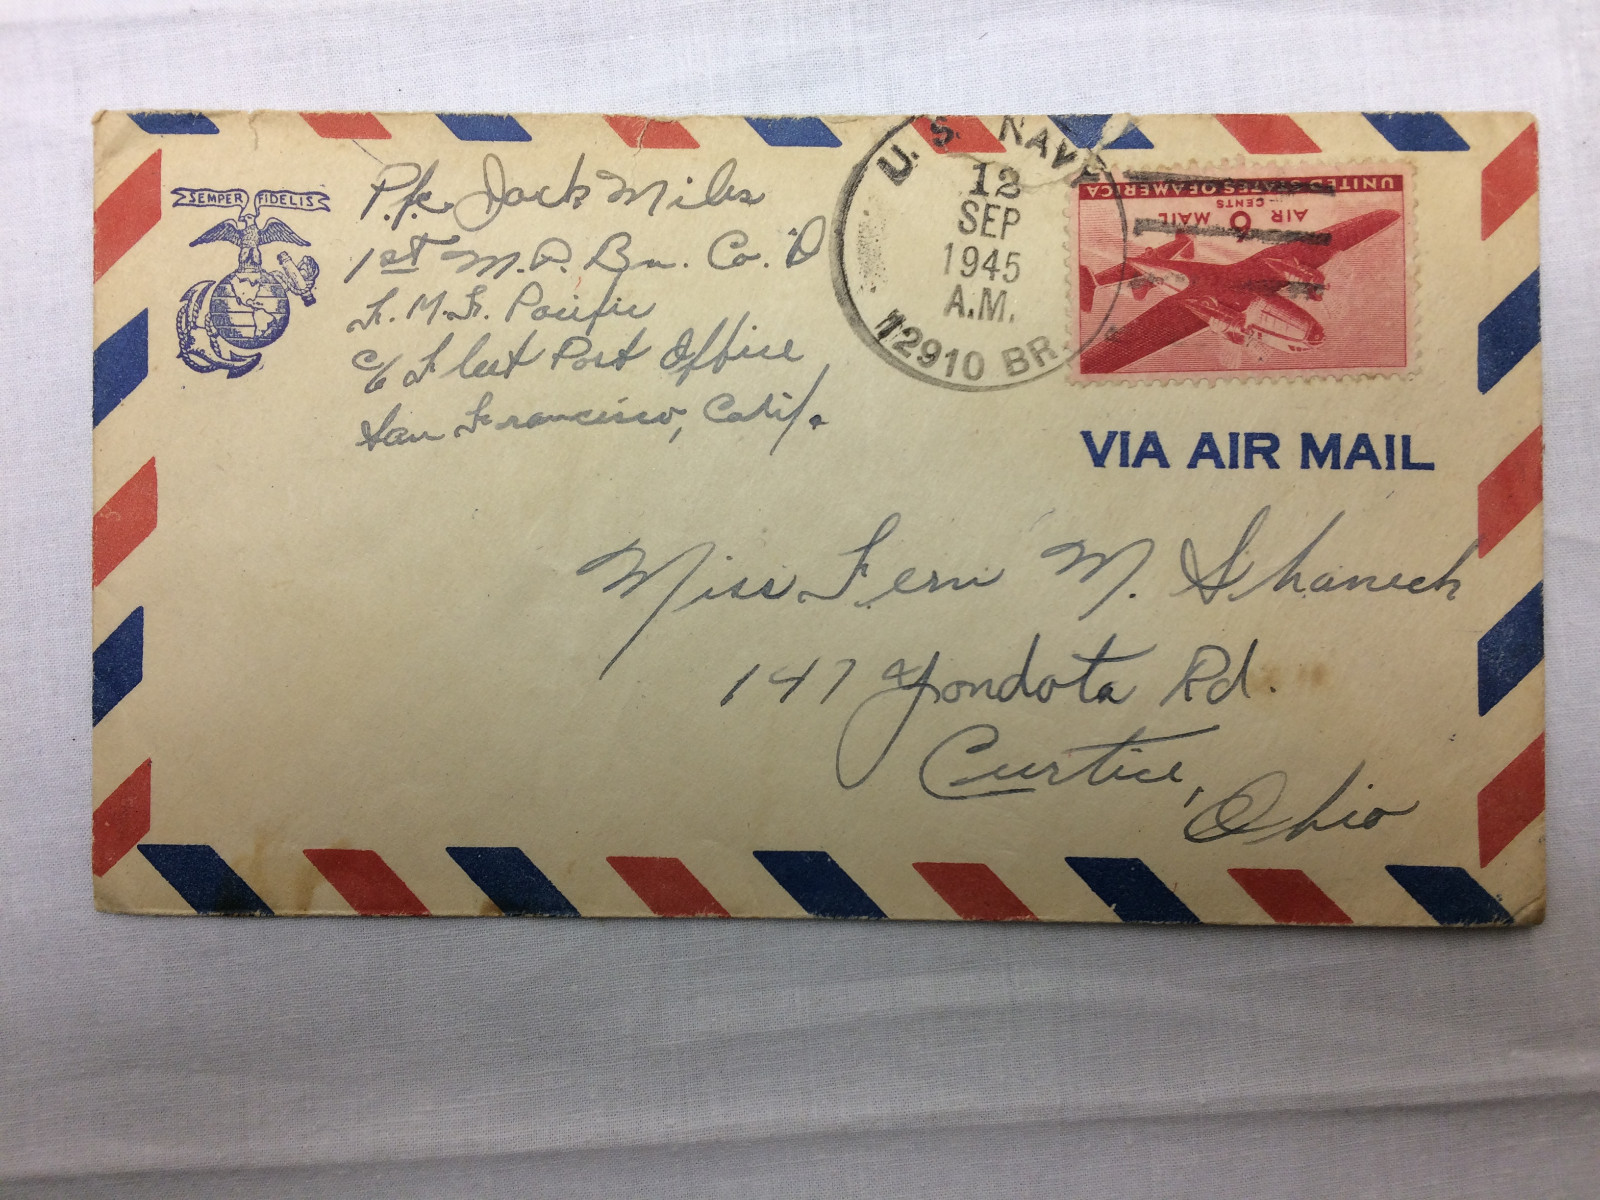 SEMPER FIDELIS
Pfc Jack Miles
1st M.P. Bn. Co. D
F.M.F. Pacific
c/o Fleet Post Office
San Francisco, Calif.
U.S. NAVY
12
SEP
1945
A.M.
12910 BR.
UNITED STATES OF AMERICA
AIR 6 MAIL
CENTS
VIA AIR MAIL
Miss Fern M. Shaneck
147 Yondota Rd.
Curtice, Ohio